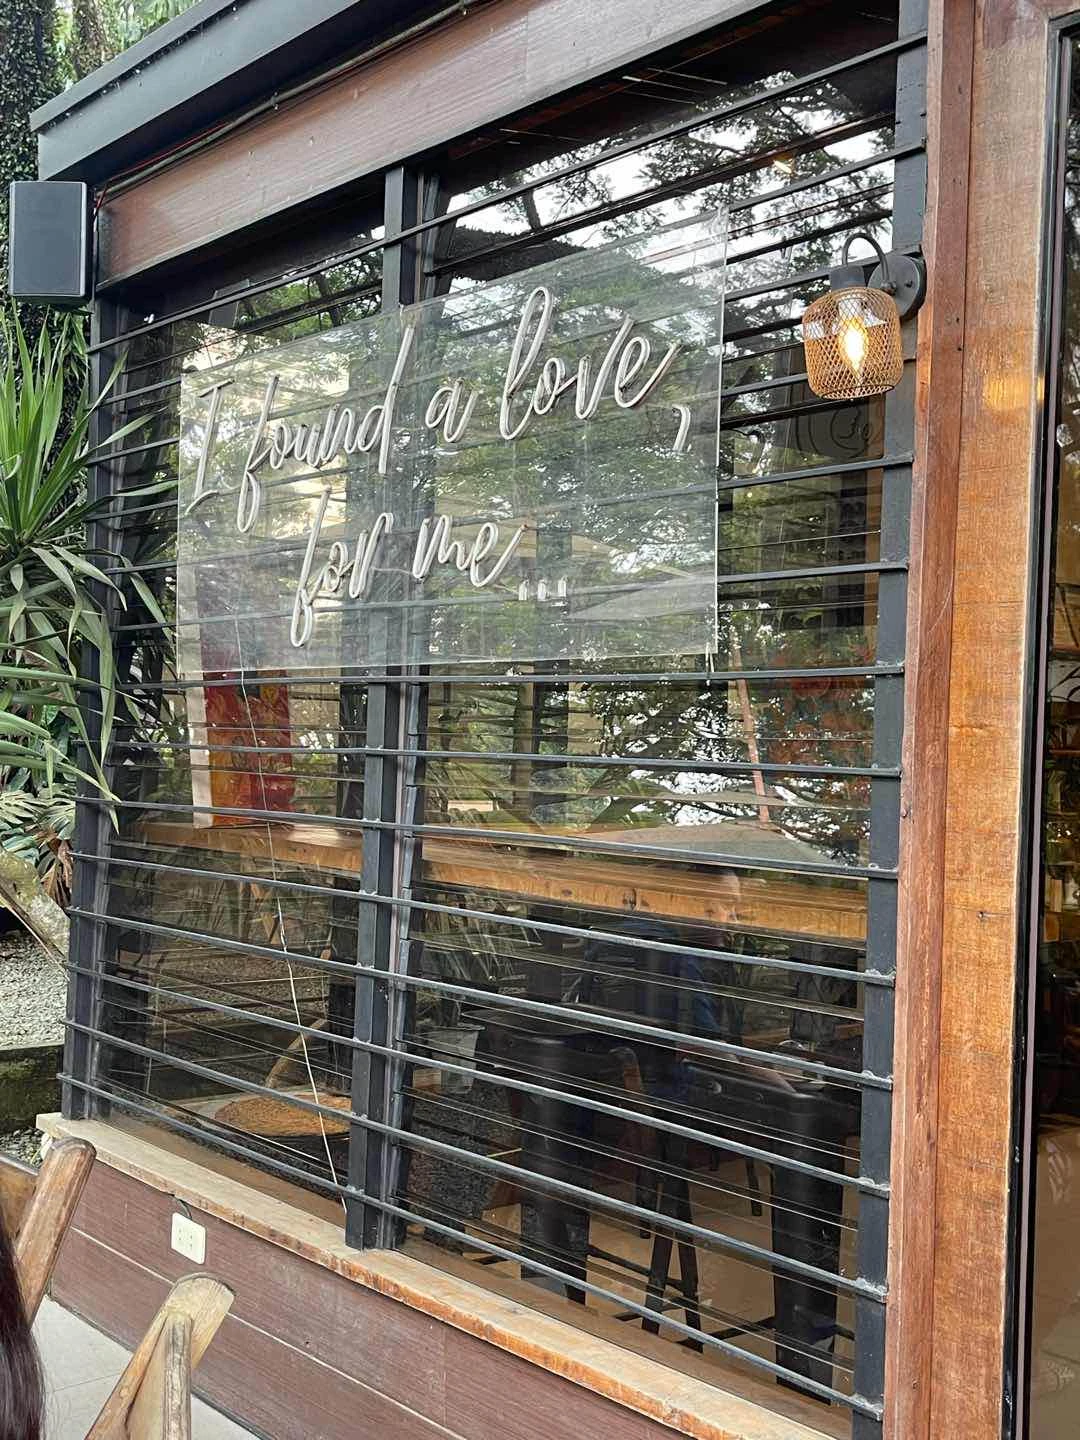 I found a love,
for me...